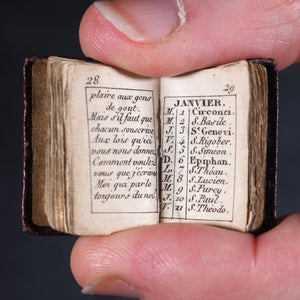 28
plaire aux gens
de gout.
Mais s'il faut que
chacun souscrive
Aux lois qu'ici
vous nous donnez,
Comment voulez
vous que j'écrive
Moi qui parle
toujours du nez
29
JANVIER.
M. 1 Circonci.
M. 2 S. Basile.
J. 3 Ste Genevi.
V. 4 S. Rigober.
S. 5 S. Simeon.
D. 6 Epiphan.
L. 7 S. Théau.
M. 8 S. Lucien.
M. 9 S. Furcy.
J. 10 S. Paul.
V. 11 S. Théodo.